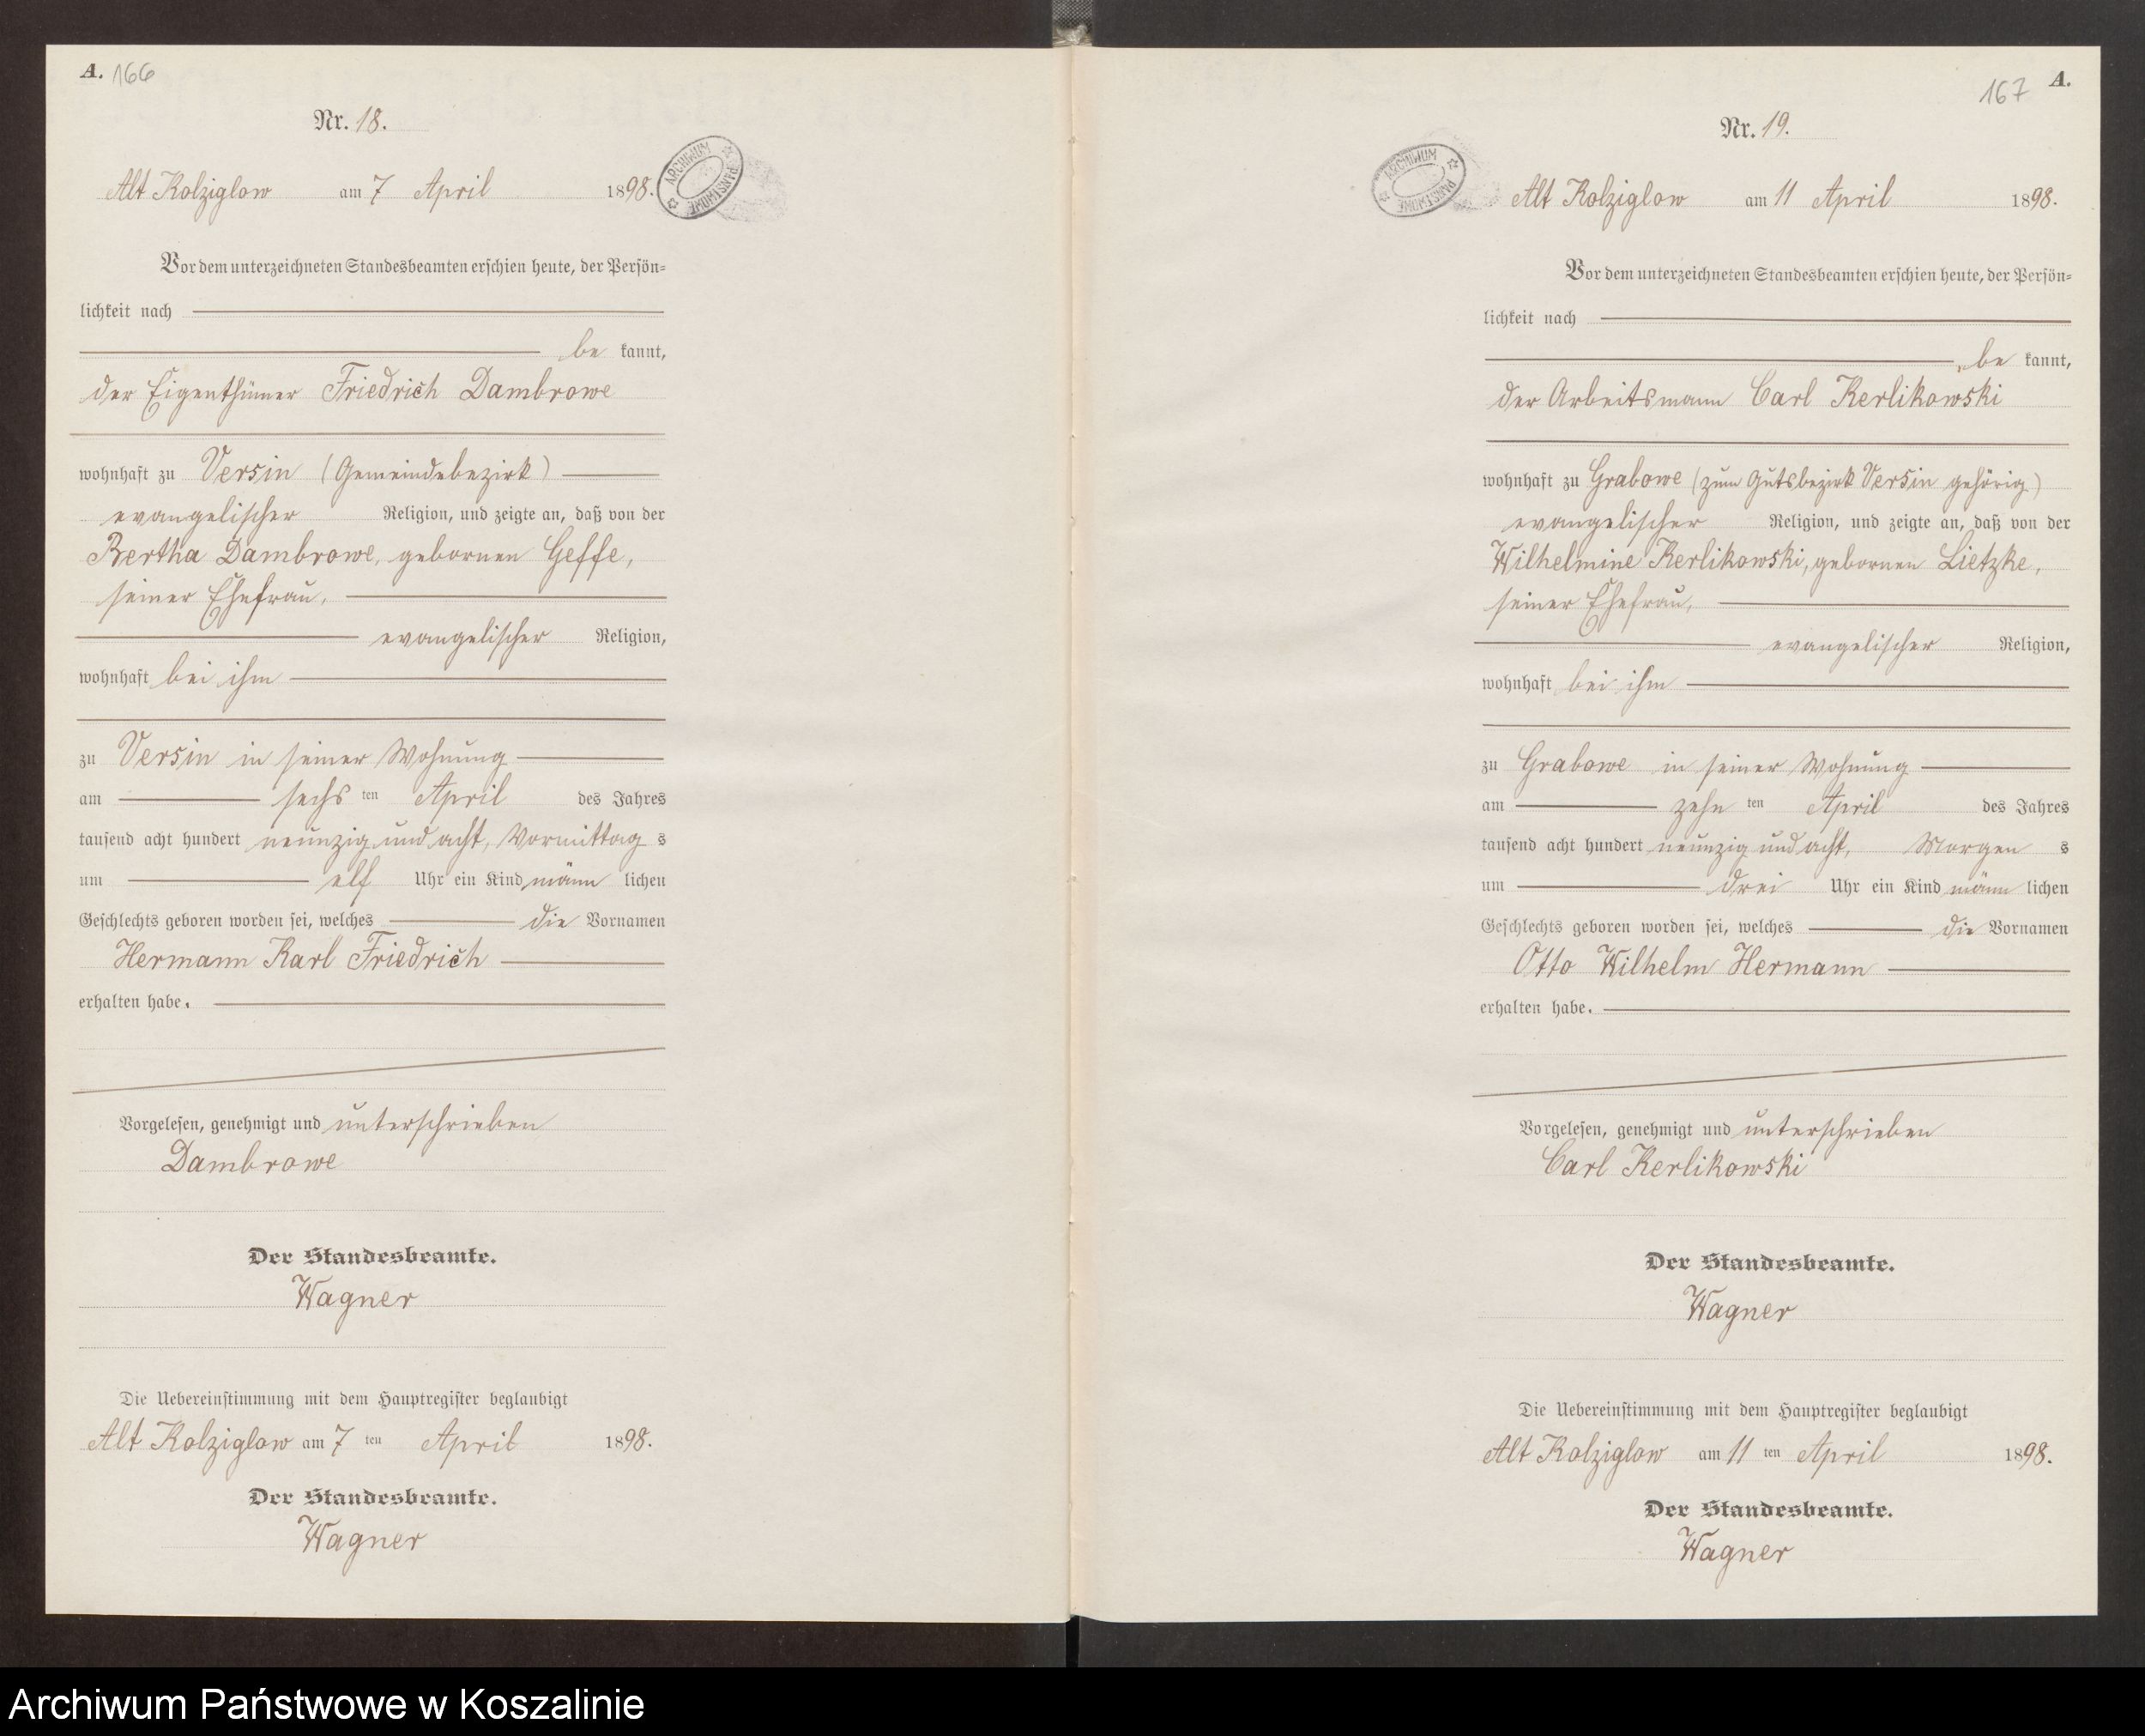 A. 166
Nr. 18.
Alt Kolziglow am 7 April 1898.
ARCHIWUM PAŃSTWOWE
Vor dem unterzeichneten Standesbeamten erschien heute, der Persön-
lichkeit nach
be kannt,
der Eigenthümer Friedrich Dambrowe
wohnhaft zu Versin (Gemeindebezirk)
evangelischer Religion, und zeigte an, daß von der
Bertha Dambrowe, gebornen Geffe,
seiner Ehefrau,
evangelischer Religion,
wohnhaft bei ihm
zu Versin in seiner Wohnung
am sechs ten April des Jahres
tausend acht hundert neunzig und acht, Vormittag s
um elf Uhr ein Kind männ lichen
Geschlechts geboren worden sei, welches die Vornamen
Hermann Karl Friedrich
erhalten habe.
Vorgelesen, genehmigt und unterschrieben
Dambrowe
Der Standesbeamte.
Wagner
Die Uebereinstimmung mit dem Hauptregister beglaubigt
Alt Kolziglow am 7 ten April 1898.
Der Standesbeamte.
Wagner
167 A.
Nr. 19.
ARCHIWUM PAŃSTWOWE
Alt Kolziglow am 11 April 1898.
Vor dem unterzeichneten Standesbeamten erschien heute, der Persön-
lichkeit nach
be kannt,
der Arbeitsmann Carl Kerlikowski
wohnhaft zu Grabowe (zum Gutsbezirk Versin gehörig)
evangelischer Religion, und zeigte an, daß von der
Wilhelmine Kerlikowski, gebornen Lietzke,
seiner Ehefrau,
evangelischer Religion,
wohnhaft bei ihm
zu Grabowe in seiner Wohnung
am zehn ten April des Jahres
tausend acht hundert neunzig und acht, Morgen s
um drei Uhr ein Kind männ lichen
Geschlechts geboren worden sei, welches die Vornamen
Otto Wilhelm Hermann
erhalten habe.
Vorgelesen, genehmigt und unterschrieben
Carl Kerlikowski
Der Standesbeamte.
Wagner
Die Uebereinstimmung mit dem Hauptregister beglaubigt
Alt Kolziglow am 11 ten April 1898.
Der Standesbeamte.
Wagner
Archiwum Państwowe w Koszalinie